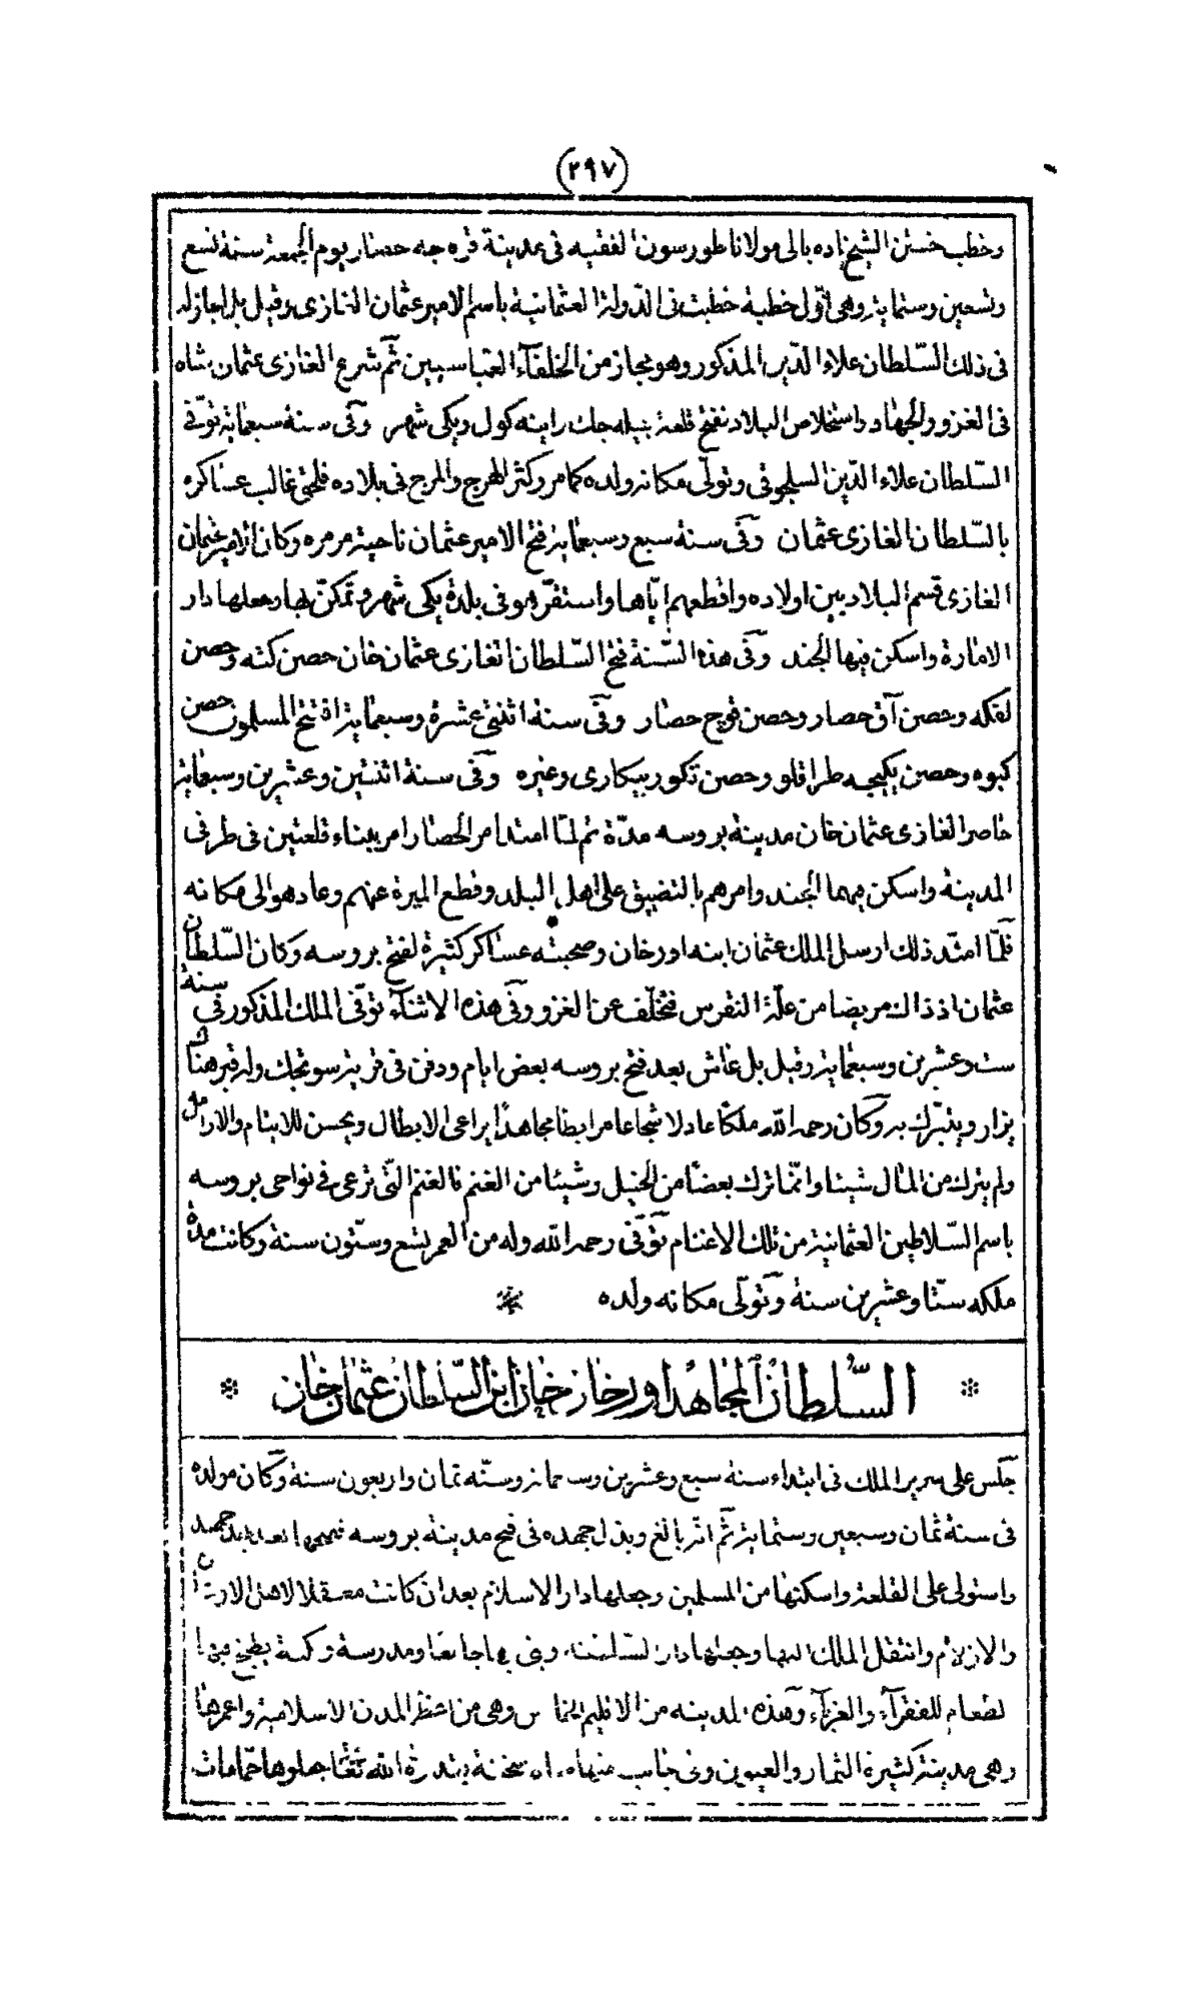 (٢٩٧)
وخطب ختن الشيخ اده بالى مولانا طورسون الفقيه فى مدينة قره جه حصار يوم الجمعة سنة تسع
وتسعين وستماية وهى اوّل خطبة خطبت فى الدّولة العثمانية باسم الامير عثمان الغازى وقيل بل اجازله
فى ذلك السّلطان علاء الدّين المذكور وهو مجاز من الخلفآء العبّاسيين ثم شرع الغازى عثمان شاه
فى الغزو والجهاد واستخلاص البلاد ففتح قلعة بيله جك واينه كول ويكى شهر وفى سنة سبعماية توّفى
السّلطان علاء الدّين السلجوقى وتولّى مكانه ولده كما مر وكثر الهرج والمرج فى بلاده فلحق غالب عساكره
بالسّلطان الغازى عثمان وفى سنة سبع وسبعماية فتح الامير عثمان ناحية مرمره وكان الامير عثمان
الغازى قسم البلاد بين اولاده واقطعهم ايّاها واستقرّ هو فى بلدة يكى شهر وتمكّن بها وجعلها دار
الامارة واسكن فيها الجند وفى هذه السّنة فتح السّلطان الغازى عثمان خان حصن كته وحصن
لفكه وحصن آق حصار وحصن قوج حصار وفى سنة اثنتى عشرة وسبعماية افتتح المسلمون حصن
كبوه وحصن يكيجه طراقلو وحصن تكور بيكارى وغيره وفى سنة اثنتين وعشرين وسبعماية
حاصر الغازى عثمان خان مدينة بروسه مدّة ثم لمّا امتد امر الحصار امر ببناء قلعتين فى طرفى
المدينة واسكن فيهما الجند وامرهم بالتضييق على اهل البلد وقطع الميرة عنهم وعاد هو الى مكانه
فلمّا امتد ذلك ارسل الملك عثمان ابنه اورخان وصحبته عساكر كثيرة لفتح بروسه وكان السّلطان
عثمان اذ ذاك مريضا من علّة النقرس فتخلّف عن الغزو وفى هذه الاثنآء توّفى الملك المذكور فى سنة
ست وعشرين وسبعماية وقيل بل عاش بعد فتح بروسه بعض ايام ودفن فى قرية سوكجك وله قبر هناك
يزار ويتبرّك به وكان رحمه الله ملكًا عادلا شجاعا مرابطا مجاهدًا يراعى الابطال ويحسن للايتام والارامل
ولم يترك من المال شيئا وانّما ترك بعضًا من الخيل وشيئا من الغنم فالغنم التّى ترعى فى نواحى بروسه
باسم السّلاطين العثمانية من تلك الاغنام توّفى رحمه الله وله من العمر تسع وستّون سنة وكانت مدة
ملكه ستّا وعشرين سنة وتولّى مكانه ولده
السّلطان المجاهد اورخان خان ابن السّلطان عثمان خان
جلس على سرير الملك فى ابتداء سنة سبع وعشرين وسبعماية وسنّه ثمان واربعون سنة وكان مولده
فى سنة ثمان وسبعين وستماية ثم انّه بالغ وبذل جهده فى فتح مدينة بروسه ففتحها بعد جهد
واستولى على القلعة واسكنها من المسلمين وجعلها دار الاسلام بعد ان كانت معقلا لاهل الاوثان
والازلام وانتقل الملك اليها وجعلها دار السّلطنة وبنى بها جامعا ومدرسة وتكية يطبخ فيها
الطعام للفقرآء والغربآء وهذه المدينة من الاقليم الخامس وهى من اعظم المدن الاسلامية واعمرها
وهى مدينة كثيرة الثمار والعيون وفى جانب منها مياه سخنة بقدرة الله تعالى جعلوها حمّامات